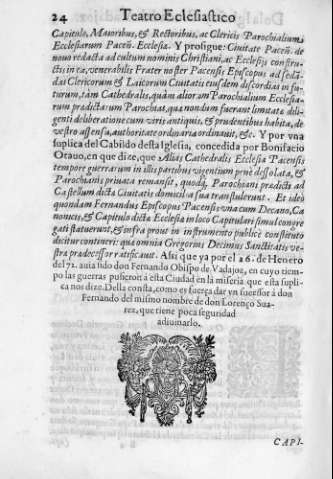 24 Teatro Eclesiastico
Capitulo, Maioribus, & Rectoribus, ac Clericis Parochialium,
Ecclesiarum Paceñ. Ecclesia. Y prosigue: Ciuitate Paceñ. de
nouo redacta ad cultum nominis Christiani, ac Ecclesijs constru-
ctis in ea, venerabilis Frater noster Pacensis Episcopus ad sedã-
das Clericorum & Laicorum Ciuitatis eiusdem discordias in fu-
turum, tàm Cathedralis, quàm aliorum Parochialium Ecclesia-
rum prædictarum Parochias, quæ nondum fuerant limitatæ dili-
genti deliberatione cum viris antiquis, & prudentibus habita, de
vestro assensu, authoritate ordinaria ordinauit, &c. Y por vna
suplica del Cabildo desta Iglesia, concedida por Bonifacio
Otauo, en que dize, que Alias Cathedralis Ecclesia Pacensis
tempore guerrarum in illis partibus vigentium penè dessolata, &
Parochianis priuata remansit, quodq; Parochiani prædicti ad
Castellum dicta Ciuitatis domicilia sua transtulerunt. Et ideò
quondam Fernandus Episcopus Pacensis vna cum Decano, Ca
nonicis, & Capitulo dicta Ecclesia in loco Capitulari simul congre
gati statuerunt, & infra prout in instrumento publicè constituto
dicitur contineri: quæ omnia Gregorius Decimus Sanctitatis ve-
stra prædecessor ratificauit. Assi que ya por el a 26. de Henero
del 72. auia sido don Fernando Obispo de Vadajoz, en cuyo tiem-
po las guerras pusieron à esta Ciudad en la miseria que esta supli-
ca nos dize. Della consta, como es fuerça dar vn sucessor à don
Fernando del mismo nombre de don Lorenço Sua-
rez, que tiene poca seguridad
adiuinarlo.
CAPI-